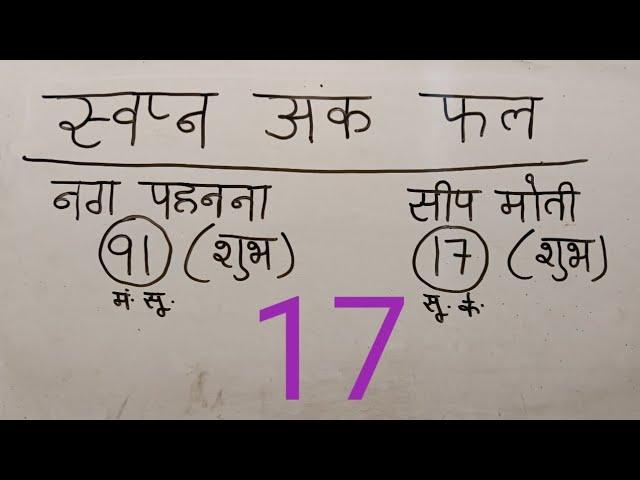 स्वप्न अक फल
नग पहनना सीप मोती
91 (शुभ) 17 (शुभ)
मं. सू. सू. के.
17